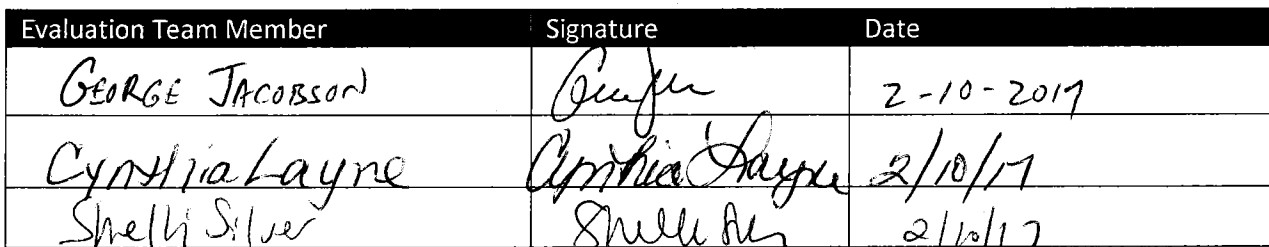 Evaluation Team Member Signature Date
GEORGE JACOBSON 2-10-2017
Cynthia Layne Cynthia Layne 2/10/17
Shelli Silver Shelli 2/10/17